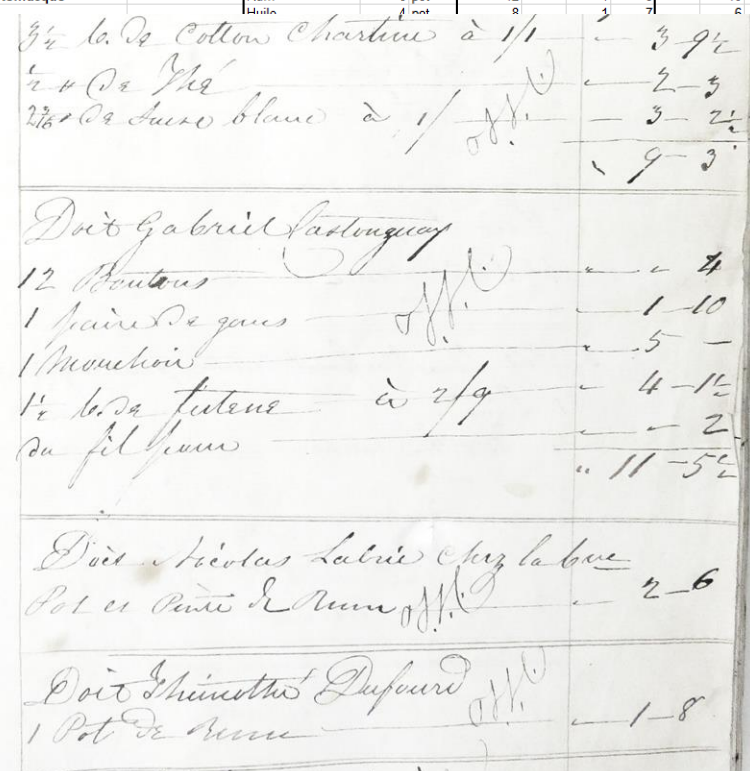 3½ v. de Cotton à 1/1 " 3 - 9½
½ " de Thé " 2 - 3
2 3/16 " de Sucre blanc à 1/ — 3 - 2½
9 - 3
Doit Gabriel Castonguay
12 Boutons " " 4
1 paire de gans " 1 - 10
1 Mouchoir " 5 -
1½ v. de futene à 2/9 " 4 - 1½
du fil pour " " 2
" 11 - 5½
Doit Nicolas Labrie chez la
Pot et Pinte de Rum " 2 - 6
Doit Thimothé Dufourd
1 Pot de Rum " 1 - 8